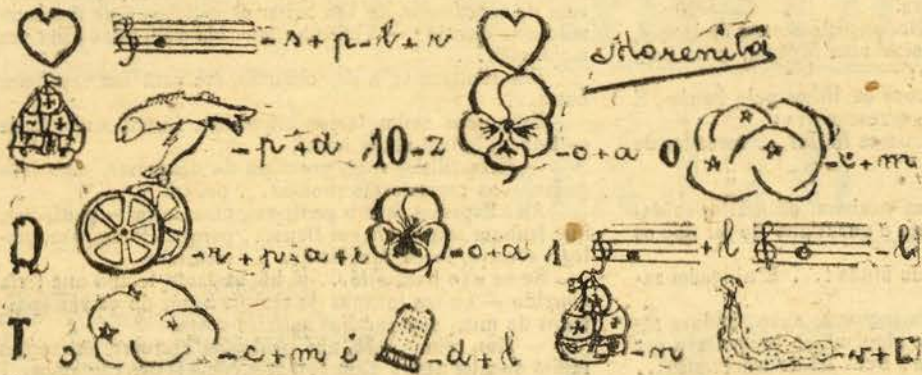 -s+p-l+r Morenita
-p+d 10-z -o+a O -c+m
Q -r+p-a+e -o+a 1 +l -l
T o -c+m é -d+l -n -r+C